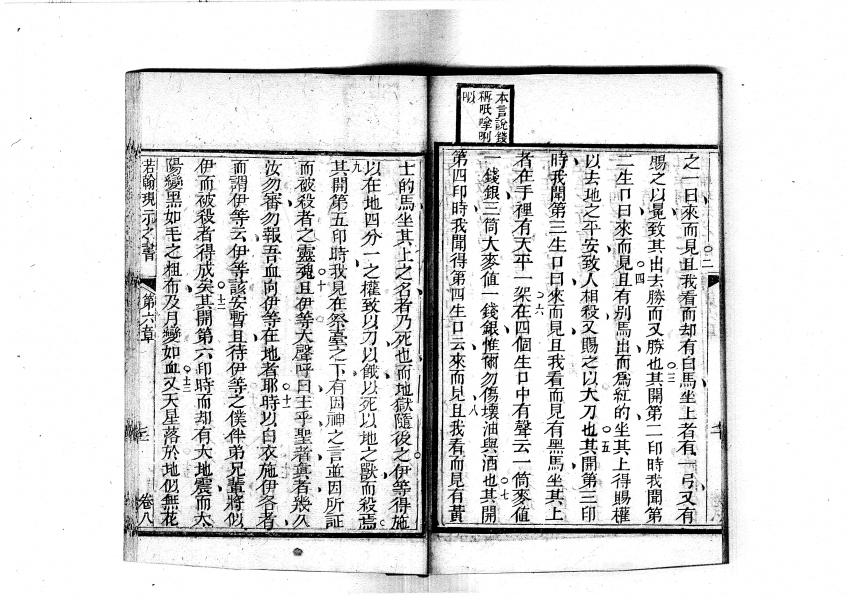 本言說錢
稱呧嗱唎
呅
之一曰來而見且我看而却有白馬坐上者有一弓又有
賜之以冕致其出去勝而又勝也其開第二印時我聞第
二生口曰來而見且有別馬出而為紅的坐其上得賜權
以去地之平安致人相殺又賜之以大刀也其開第三印
時我聞第三生口曰來而見且我看而見有黑馬坐其上
者在手裡有天平一架在四個生口中有聲云一筒麥值
一錢銀三筒大麥值一錢銀惟爾勿傷壞油與酒也其開
第四印時我聞得第四生口云來而見且我看而見有黃
士的馬坐其上之名者乃死也而地獄隨後之伊等得施
以在地四分一之權致以刀以餓以死以地之獸而殺焉
其開第五印時我見在祭臺之下有因神之言並因所証
而被殺者之靈魂且伊等大聲呼曰主乎聖者真者幾久
汝勿審勿報吾血向伊等在地者耶時以白衣施伊各者
而謂伊等云伊等該安暫且待伊等之僕伴弟兄輩將似
伊而被殺者得成矣其開第六印時而却有大地震而太
陽變黑如毛之粗布及月變如血又天星落於地似無花
若翰現示之書 第六章 卷八